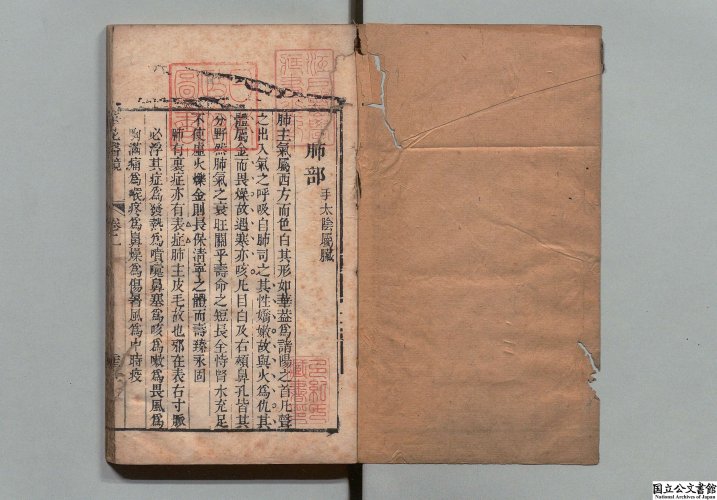 肺部 手太陰屬臟
肺主氣屬西方而色白其形如華蓋爲諸陽之首凡聲
之出入氣之呼吸自肺司之其性嬌嫩故與火爲仇其
體屬金而畏燥故遇寒亦咳凡目白及右頰鼻孔皆其
分野然肺氣之衰旺關乎壽命之短長全恃腎水充足
不使虛火爍金則長保清寧之體而壽臻永固
肺有裏症亦有表症肺主皮毛故也邪在表右寸脈
必浮其症爲發熱爲噴嚏鼻塞爲咳爲嗽爲畏風爲
胸滿痛爲喉疼爲鼻燥爲傷暑風爲中時疫
卷二
国立公文書館
National Archives of Japan